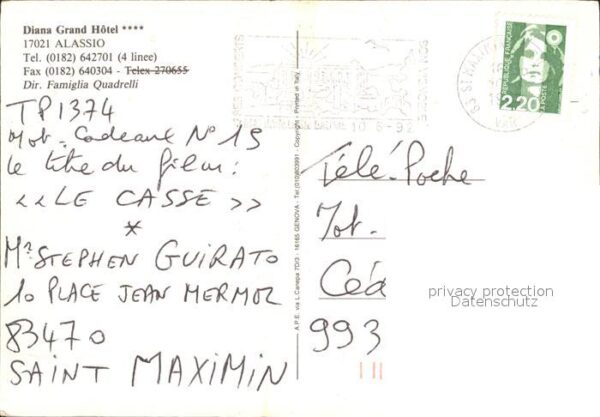 Diana Grand Hôtel ****
17021 ALASSIO
Tel. (0182) 642701 (4 linee)
Fax (0182) 640304 - Telex 270655
Dir. Famiglia Quadrelli
TP1374
Mot. Cadeaux N° 19
Le titre du film:
<<LE CASSE>>
*
Mr STEPHEN GUIRATO
10 PLACE JEAN MERMOZ
83470
SAINT MAXIMIN
A.P.E. via L. Canepa 7D/3 - 16165 GENOVA - Tel. (010)803991 - Copyright - Printed in Italy
10-6-92
83 ST MAXIMIN
VAR
REPUBLIQUE FRANÇAISE
2,20
LA POSTE
Télé-Poche
Mot.
Céd
993
privacy protection
Datenschutz